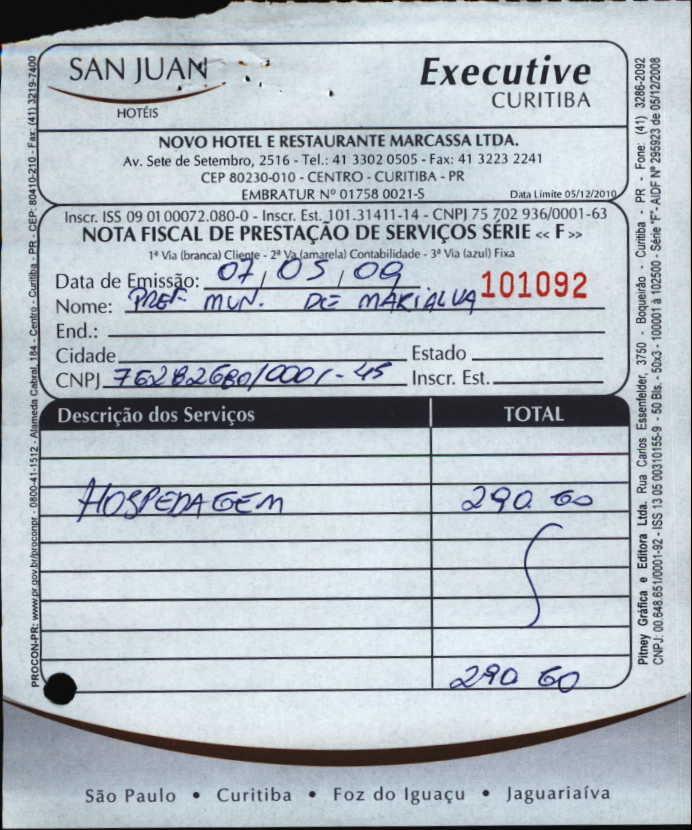 SAN JUAN
HOTÉIS
Executive
CURITIBA
NOVO HOTEL E RESTAURANTE MARCASSA LTDA.
Av. Sete de Setembro, 2516 - Tel.: 41 3302 0505 - Fax: 41 3223 2241
CEP 80230-010 - CENTRO - CURITIBA - PR
EMBRATUR Nº 01758 0021-5
Data Limite 05/12/2010
Inscr. ISS 09 01 00072.080-0 - Inscr. Est. 101.31411-14 - CNPJ 75 702 936/0001-63
NOTA FISCAL DE PRESTAÇÃO DE SERVIÇOS SÉRIE « F »
1ª Via (branca) Cliente - 2ª Via (amarela) Contabilidade - 3ª Via (azul) Fixa
Data de Emissão: 07 / 05 / 09
101092
Nome: PREF MUN. DE MARIALVA
End.:
Cidade Estado
CNPJ 76282680/0001-45 Inscr. Est.
Descrição dos Serviços TOTAL
HOSPEDAGEM 290.60
290 60
São Paulo • Curitiba • Foz do Iguaçu • Jaguariaíva
PROCON-PR: www.pr.gov.br/proconpr - 0800-41-1512 - Alameda Cabral, 184 - Centro - Curitiba - PR - CEP: 80410-210 - Fax: (41) 3219-7400
Pitney Gráfica e Editora Ltda. Rua Carlos Essenfelder, 3750 - Boqueirão - Curitiba - PR - Fone: (41) 3286-2092
CNPJ: 00.648.651/0001-92 - ISS 13 05 00310155-9 - 50 Bls. - 50x3 - 100001 à 102500 - Série "F"- AIDF Nº 295923 de 05/12/2008